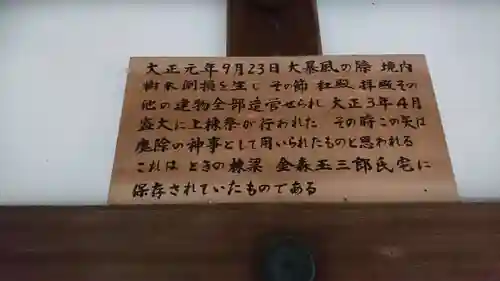 大正元年9月23日大暴風の際 境内
樹木倒損を生じ その節 社殿 拝殿その
他の建物全部造営せられ 大正3年4月
盛大に上棟祭が行われた その時この矢は
鬼除の神事として用いられたものと思われる
これは ときの棟梁 金森玉三郎氏宅に
保存されていたものである